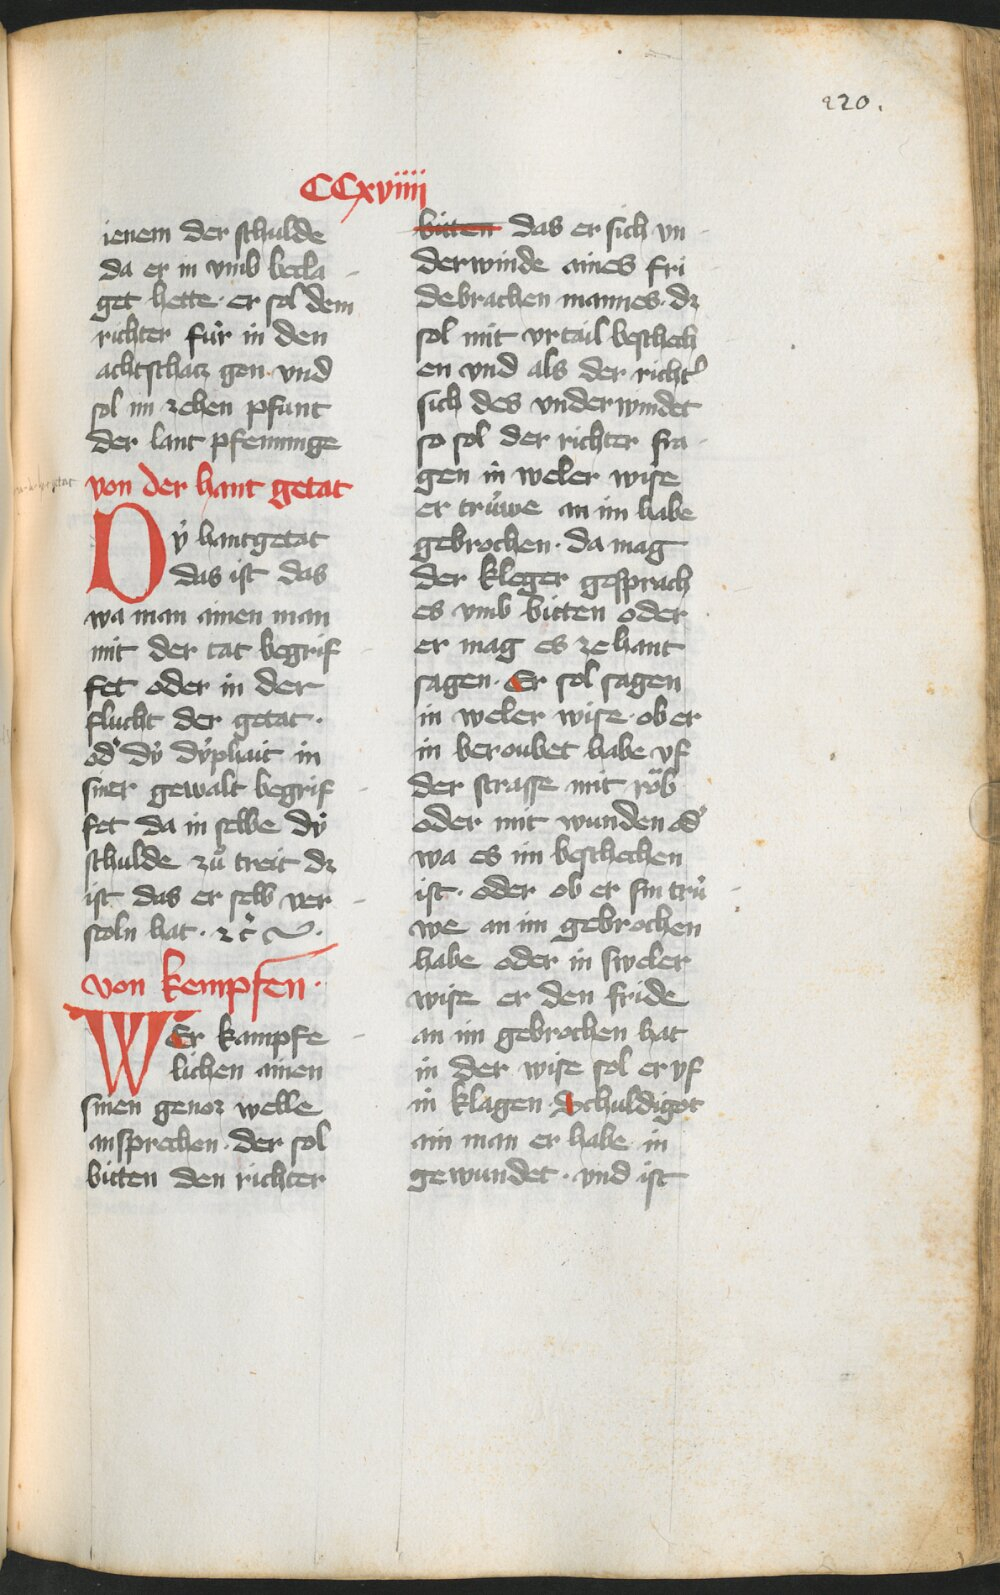 220.
CCxviiii
ienem der schulde
da er in vmb becla
get hette · er sol dem
richter für in den
achtschacz gen · vnd
sol im zehen pfunt
der lant pfenninge
von der hant getat
Dÿ hantgetat
das ist das
wa man ainen man
mit der tat begrif
fet oder in der
flucht der getat ·
od' dÿ dÿphait in
siner gewalt begrif
fet da in selbe dÿ
schulde zů treit dz
ist das er selb ver
stoln hat · zc̃
von kempfen ·
WEr kampfe
lichen ainen
sinen genoz welle
ansprechen · der sol
bitten den richter
bitten das er sich vn
derwinde aines fri
debrachen mannes · dz
sol mit vrtail beschech
en vnd als der richt'
sich des vnderwindet
so sol der richter fra
gen in weler wise
er trůwe an im habe
gebrochen · da mag
der kleger gesprach
es vmb bitten oder
er mag es zehant
sagen · Er sol sagen
in weler wise · ob er
in beroubet habe vf
der strasse mit rǒb
oder mit wunden od'
wa es im beschechen
ist · oder ob er sin trů
we an im gebrochen
habe oder in sweler
wise er den fride
an im gebrochen hat
in der wise sol er vf
in klagen · Schuldigot
ain man er habe in
gewundet · vnd ist